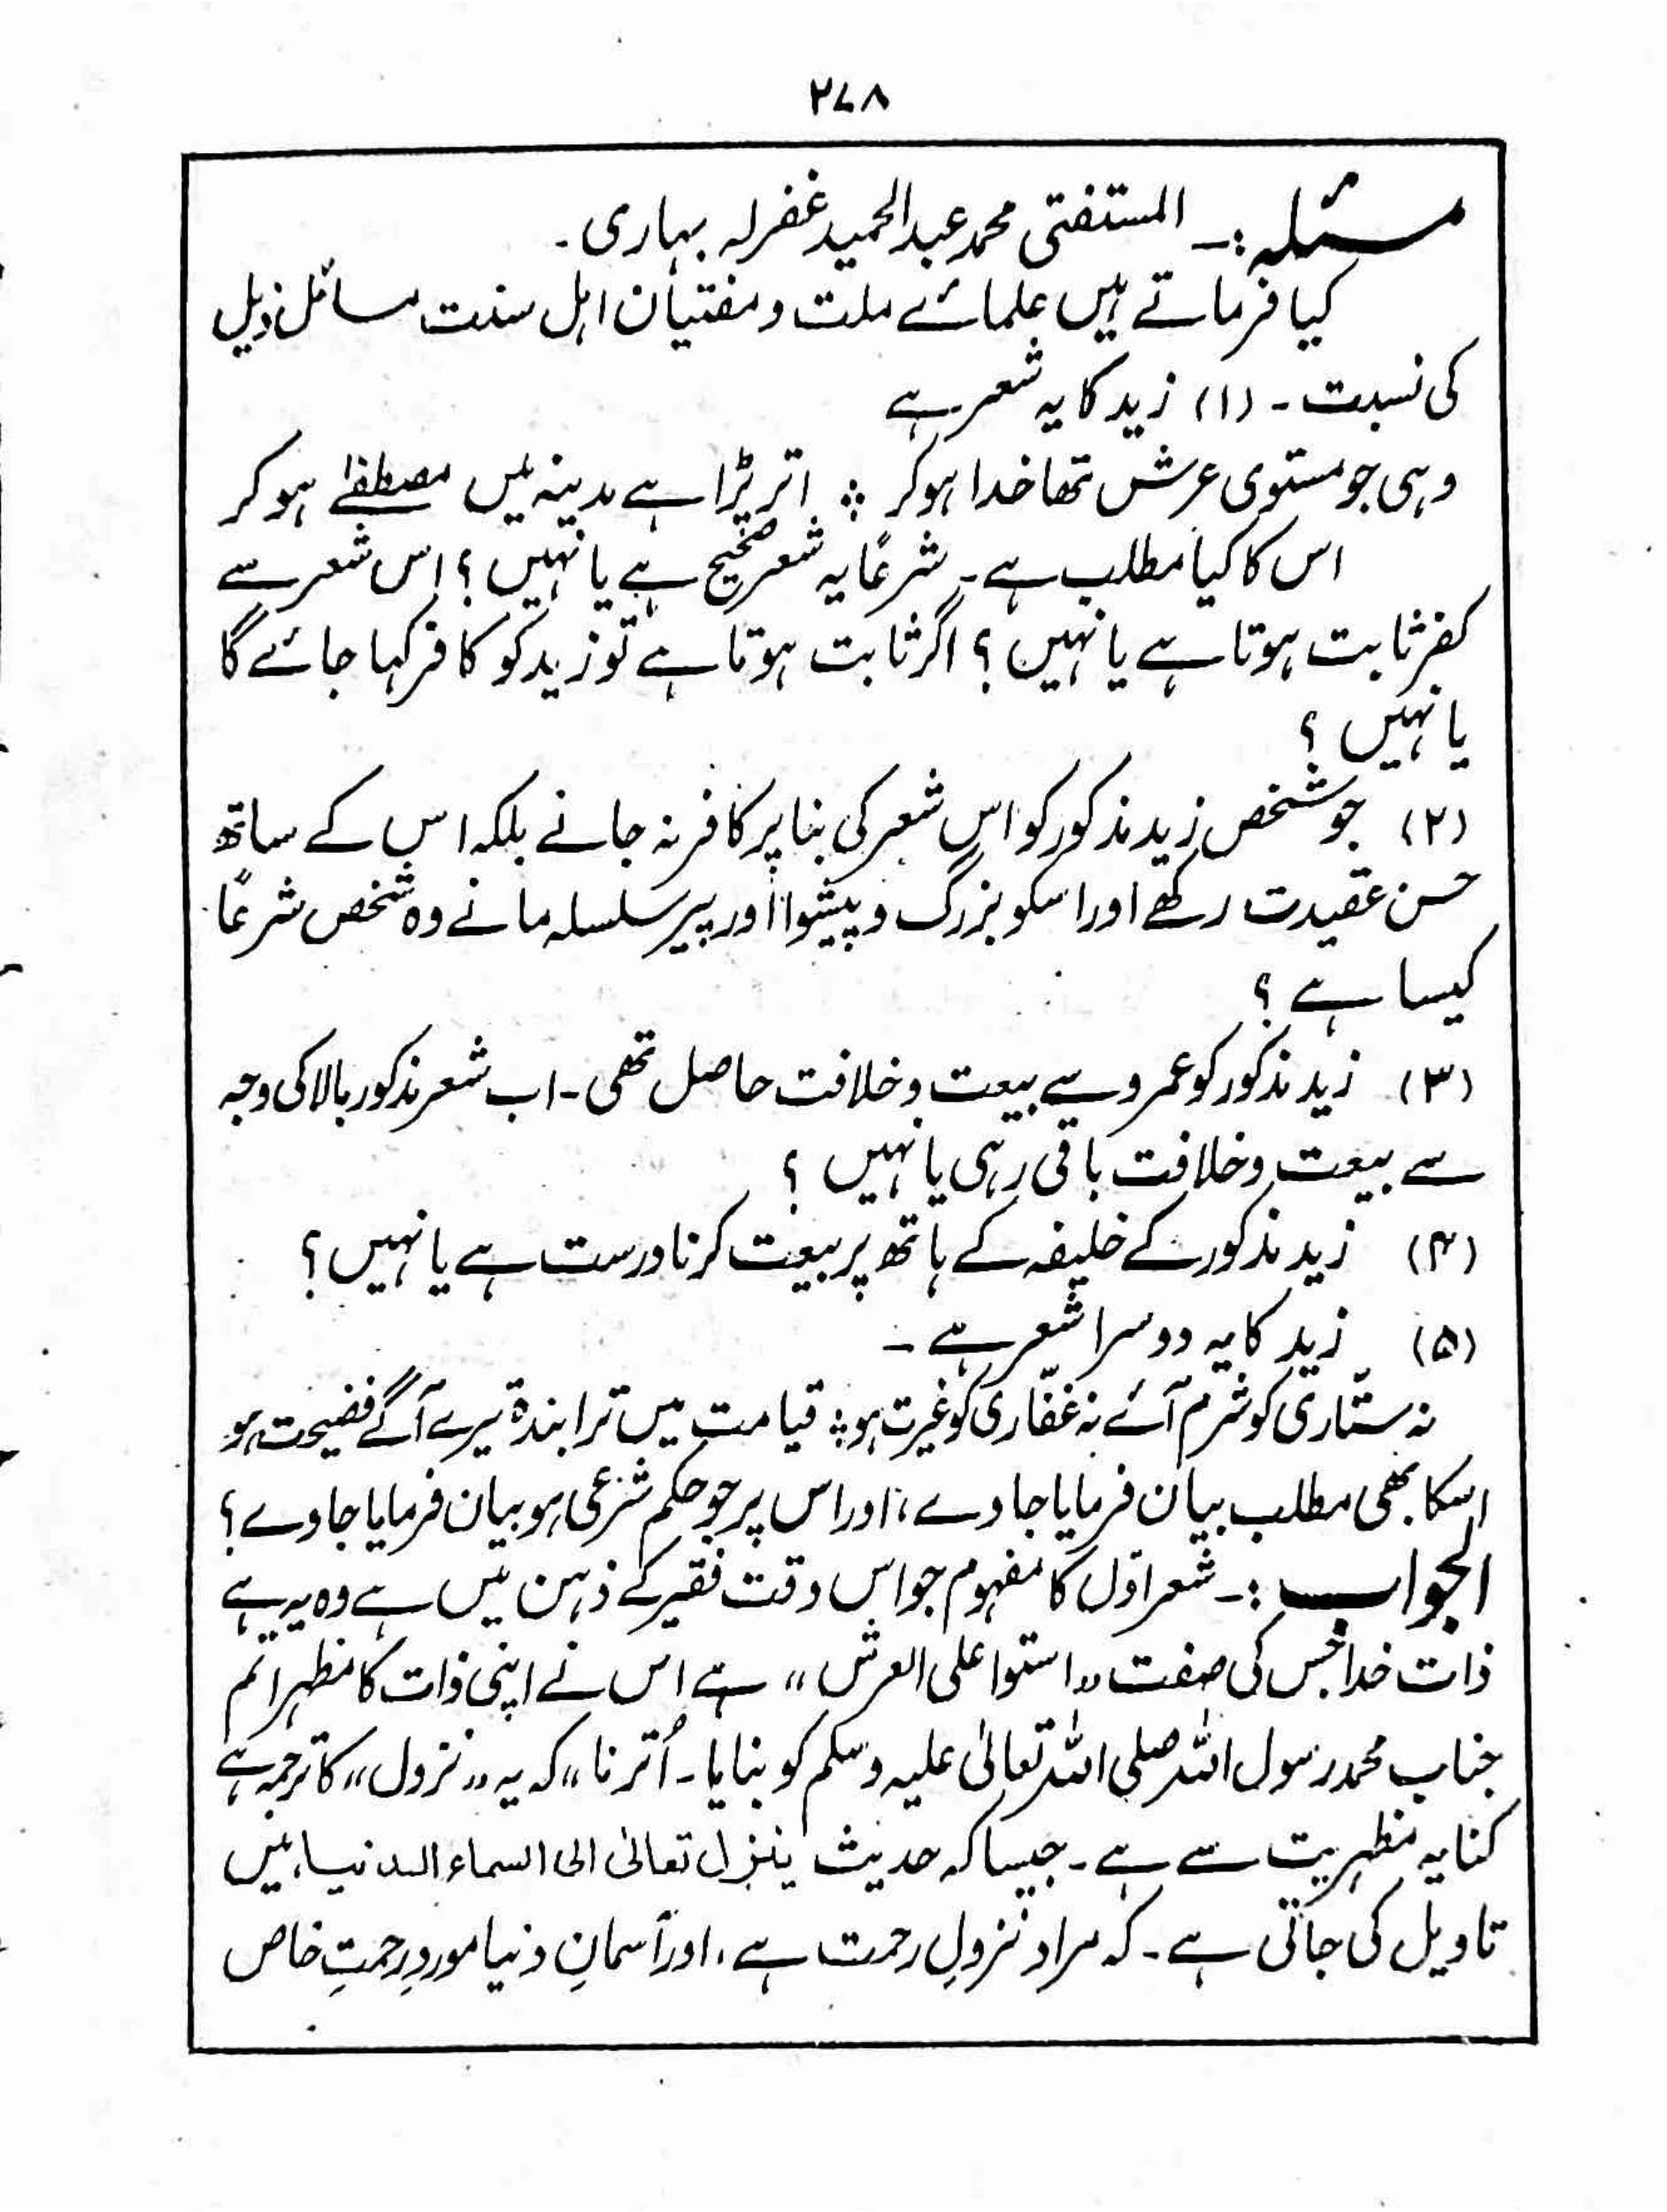 ۲۷۸
مسئلہ :۔ المستفتی محمد عبدالحمید غفرلہ بہاری۔
کیا فرماتے ہیں علمائے ملت و مفتیان اہل سنت مسائل ذیل
کی نسبت۔ (۱) زید کا یہ شعر ہے
وہی جو مستوی عرش تھا خدا ہوکر ؞ اتر پڑا ہے مدینہ میں مصطفےٰ ہو کر
اس کا کیا مطلب ہے۔ شرعاً یہ شعر صحیح ہے یا نہیں؟ اس شعر سے
کفر ثابت ہوتا ہے یا نہیں؟ اگر ثابت ہوتا ہے تو زید کو کافر کہا جائے گا
یا نہیں؟
(۲) جو شخص زید مذکور کو اس شعر کی بنا پر کافر نہ جانے بلکہ اس کے ساتھ
حسن عقیدت رکھے اور اسکو بزرگ و پیشوا اور پیر سلسلہ مانے وہ شخص شرعاً
کیسا ہے؟
(۳) زید مذکور کو عمرو سے بیعت و خلافت حاصل تھی۔ اب شعر مذکور بالا کی وجہ
سے بیعت و خلافت باقی رہی یا نہیں؟
(۴) زید مذکور کے خلیفہ کے ہاتھ پر بیعت کرنا درست ہے یا نہیں؟
(۵) زید کا یہ دوسرا شعر ہے ۔
نہ ستّاری کو شرم آئے نہ غفّاری کو غیرت ہو ؞ قیامت میں ترا بندہ تیرے آگے فضیحت ہو
اسکا بھی مطلب بیان فرمایا جاوے، اور اس پر جو حکم شرعی ہو بیان فرمایا جاوے؟
الجواب :۔ شعر اوّل کا مفہوم جو اس وقت فقیر کے ذہن میں ہے وہ یہ ہے
ذات خدا جس کی صفت ”استوا علی العرش“ ہے اس نے اپنی ذات کا مظہر اتم
جناب محمد رسول اللہ صلی اللہ تعالیٰ علیہ وسلم کو بنایا۔ اُترنا“ کہ یہ ”نزول“ کا ترجمہ ہے
کنایہ مظہریت سے ہے۔ جیسا کہ حدیث ینزل تعالیٰ الی السماء الدنیا، میں
تاویل کی جاتی ہے۔ کہ مراد نزولِ رحمت ہے، اور آسمانِ دنیا موردِ رحمتِ خاص